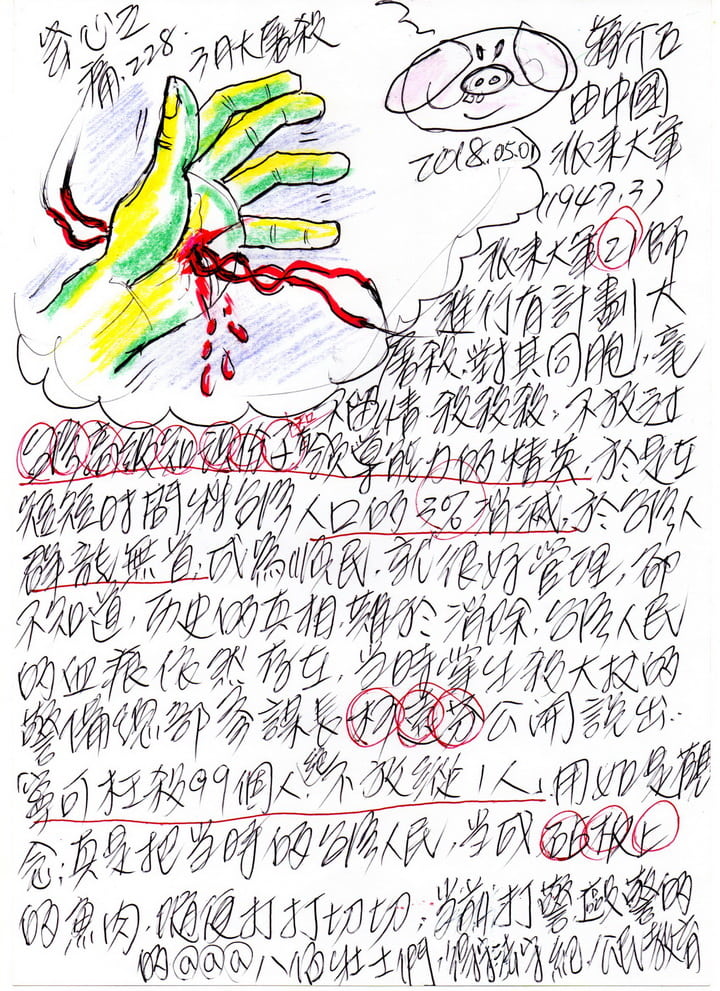 痛.228.3月大屠殺
蔣介石
由中國
2018.05.01 派來大軍
(1947.3)
派來大軍21師
進行有計劃大
屠殺.對其同胞,毫
不留情.殺殺殺.不放過
台灣高級知識份子和領導能力的精英.於是在
短短時間將台灣人口的3%消滅.於台灣人
群龍無首,成為順民,就很好管理,卻
不知道,历史的真相,難於消除.台灣人民
的血痕依然存在,當時掌生殺大权的
警備總部參謀長柯遠芬公開說出:
「寧可枉殺99個人絕不放縱1人」用如是觀
念;真是把當時的台灣人民,当成砧板上
的魚肉.隨便打打切切;當前打警毆警的
的@@@八佰壯士們,